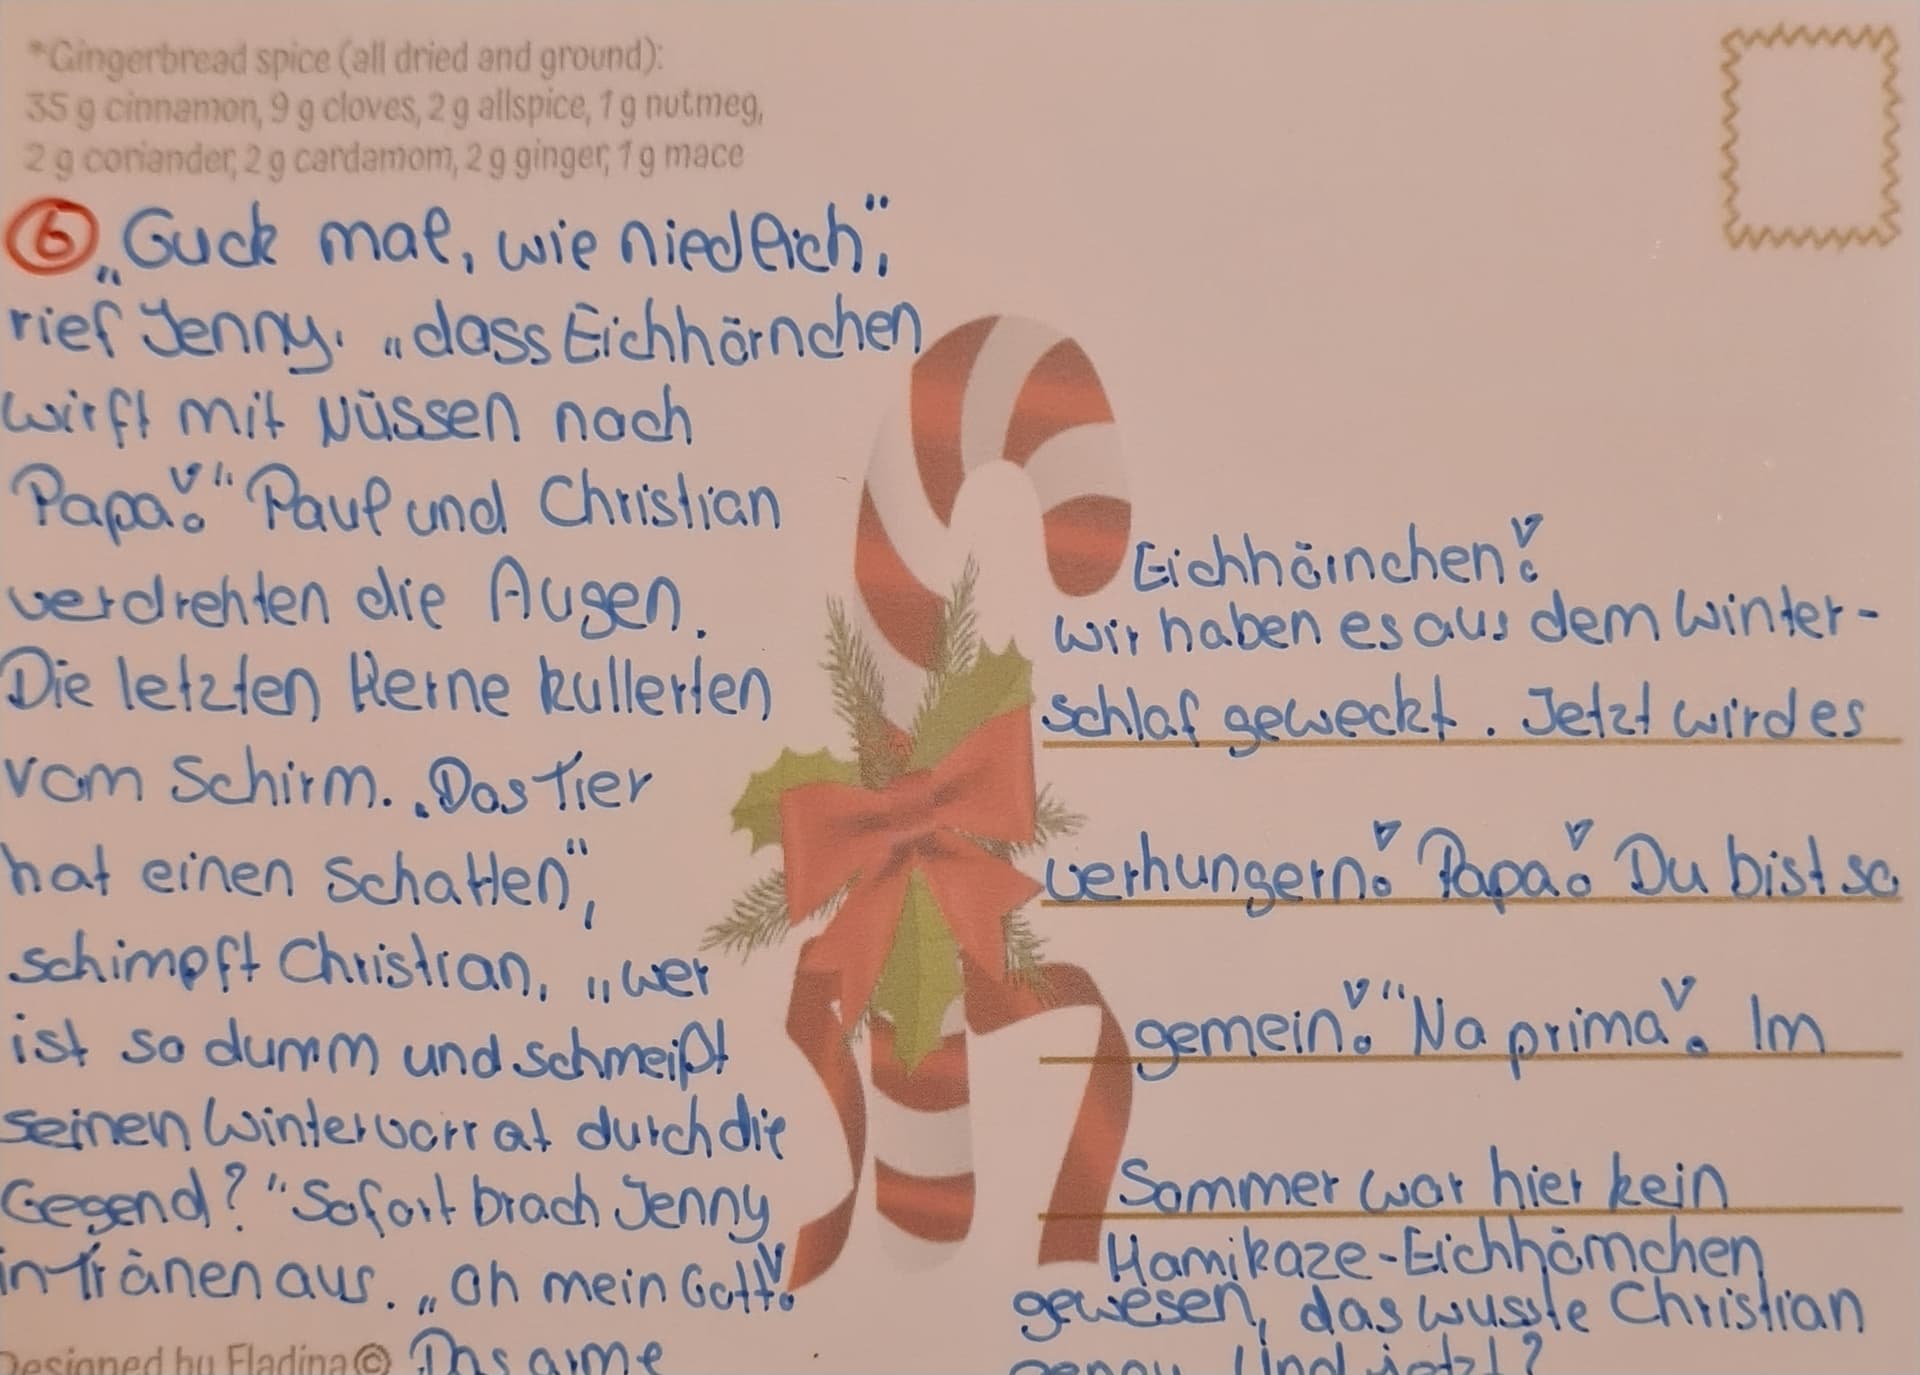 *Gingerbread spice (all dried and ground):
35 g cinnamon, 9 g cloves, 2 g allspice, 1 g nutmeg,
2 g coriander, 2 g cardamom, 2 g ginger, 1 g mace
6 „Guck mal, wie niedlich“,
rief Jenny. „dass Eichhörnchen
wirft mit Nüssen nach
Papa!“ Paul und Christian
verdrehten die Augen.
Die letzten Kerne kullerten
vom Schirm. „Das Tier
hat einen Schatten“,
schimpft Christian, „wer
ist so dumm und schmeißt
seinen Wintervorrat durch die
Gegend?“ Sofort brach Jenny
in Tränen aus. „Oh mein Gott!
Designed by Fladina©
Das arme
Eichhörnchen!
Wir haben es aus dem Winter-
schlaf geweckt. Jetzt wird es
verhungern! Papa! Du bist so
gemein!“ Na prima! Im
Sommer war hier kein
Kamikaze-Eichhörnchen
gewesen, das wusste Christian
genau. Und jetzt?